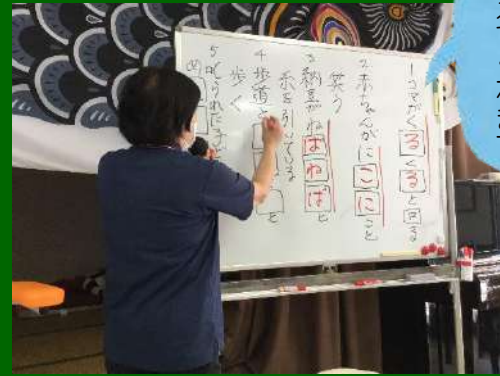 1 コマがくるくると回る
2 赤ちゃんがにこにこと
笑う
3 納豆がねばねばと
糸を引いている
4 歩道と と
歩く
5 られた子が
め